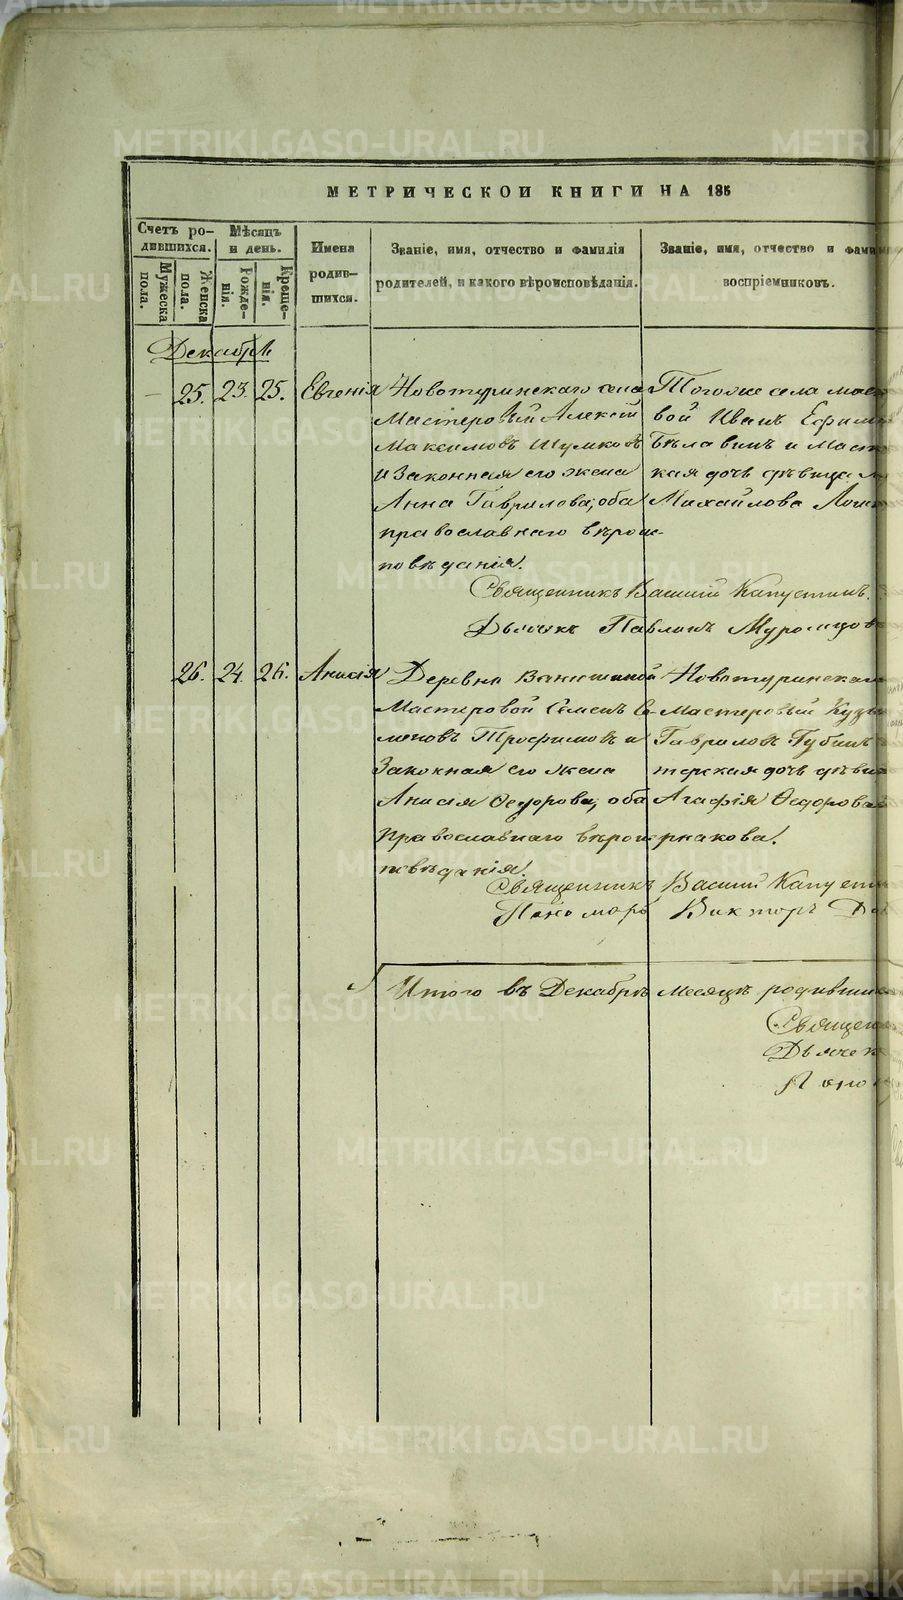 МЕТРИЧЕСКОЙ КНИГИ НА 185
Счетъ ро-
дившихся.
Мужеска
пола.
Женска
пола.
Мѣсяцъ
и день.
Рожде-
нія.
Креще-
нія.
Имена
родив-
шихся.
Званіе, имя, отчество и фамилія
родителей, и какого вѣроисповѣданія.
Званіе, имя, отчество и фами
воспріемниковъ.
Декабрь
25. 23. 25. Евгенія
Новотуринскаго села
Мастеровый Алексѣй
Максимовъ Шумковъ
и Законная его жена
Анна Гаврилова, оба
православнаго вѣрои-
повѣданія.
Тогоже села масте
вой Иванъ Ефим
Бѣлавинъ и Масте
кая дочь дѣвица
Михайлова
Священникъ Василій Капустинъ.
Дьячекъ Павлинъ Муромцовъ
26. 24. 26. Анисія
Деревни Ванюшиной
Мастеровой Семенъ Се-
меновъ Трофимовъ и
Законная его жена
Анисія Ѳедорова, оба
Православнаго вѣрои-
повѣданія.
Новотуринскаго
Мастеровый Кузь
Гавриловъ Губинъ
терская дочь дѣви
Агафія Ѳедорова
рнакова.
Священникъ Василій Капуст
Пономарь Викторъ
Итого въ Декабрѣ месяцѣ родивши
Священ
Дьячек
Поно
METRIKI.GASO-URAL.RU